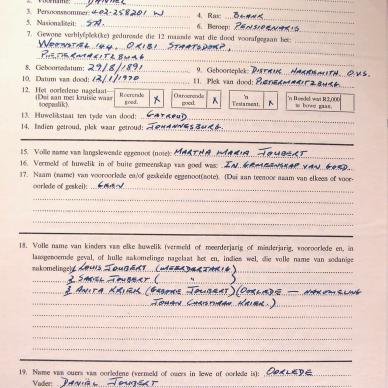 2. Voorname: DANIËL
3. Persoonsnommer: 402-258201 W 4. Ras: BLANK
5. Nasionaliteit: S.A. 6. Beroep: PENSIOENARIS
7. Gewone verblyfplek(ke) gedurende die 12 maande wat die dood voorafgegaan het:
WOONSTEL 144, ORIBI STAATSDORP,
PIETERMARITZBURG
8. Geboortedatum: 29/8/1891 9. Geboorteplek: DISTRIK HARRISMITH O.V.S.
10. Datum van dood: 12/1/1970 11. Plek van dood: PIETERMARITZBURG
12. Het oorledene nagelaat—
(Dui aan met kruisie waar toepaslik).
Roerende goed. X
Onroerende goed. X
'n Testament. X
'n Boedel wat R2,000 te bowe gaan.
13. Huwelikstaat ten tyde van dood: GETROUD
14. Indien getroud, plek waar getroud: JOHANNESBURG
15. Volle name van langslewende eggenoot (note): MARTHA MARIA JOUBERT
16. Vermeld of huwelik in of buite gemeenskap van goed was: IN GEMEENSKAP VAN GOED
17. Naam (name) van vooroorlede en/of geskeide eggenoot(note). (Dui aan teenoor naam van elkeen of vooroorlede of geskei): GEEN
18. Volle name van kinders van elke huwelik (vermeld of meerderjarig of minderjarig, vooroorlede en, in
laasgenoemde geval, of hulle nakomelinge nagelaat het en, indien wel, die volle name van sodanige
nakomelinge): 1 LOUIS JOUBERT (MEERDERJARIG)
2 SAREL JOUBERT ( " )
3 ANITA KRIEK (GEBORE JOUBERT) (OORLEDE — NAKOMELING
JOHAN CHRISTIAAN KRIEK.)
19. Name van ouers van oorledene (vermeld of ouers in lewe of oorlede is): OORLEDE
Vader: DANIËL JOUBERT